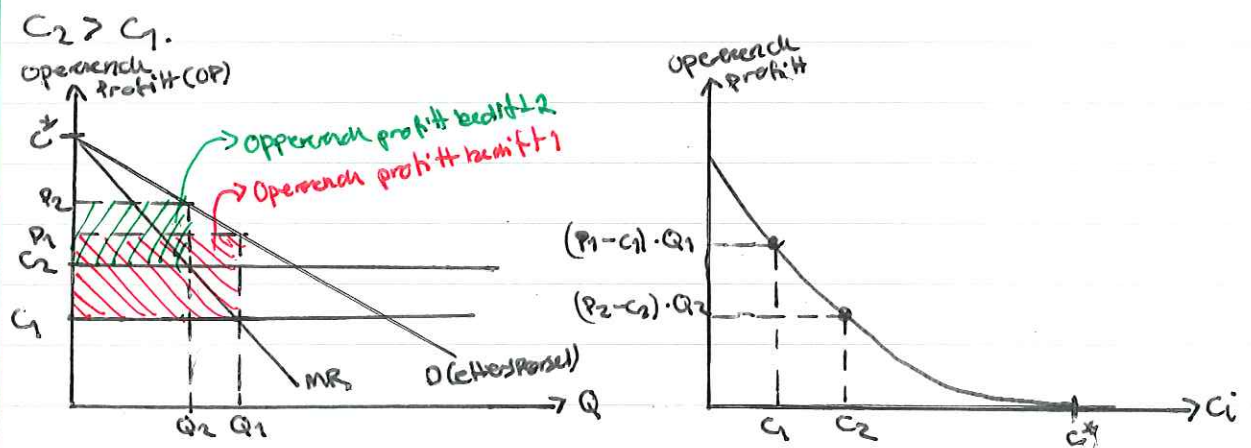 C2 > C1.
Opererende
Profitt (OP)
C*
P2
P1
C2
C1
Opperende profitt bedrift 2
Opererende profitt bedrift 1
MR
D (etterspørsel)
Q
Q2 Q1
Opererende
profitt
(P1-C1)·Q1
(P2-C2)·Q2
C1 C2 C*
Ci